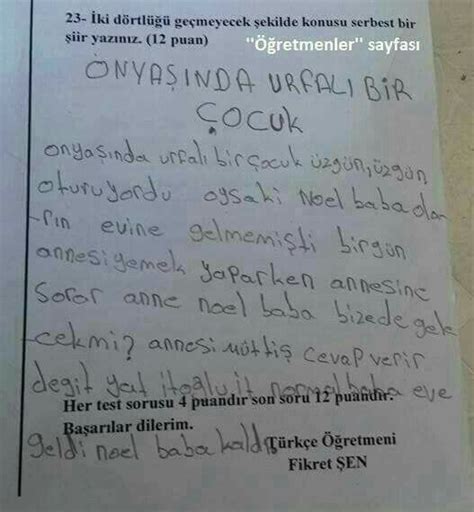 23- İki dörtlüğü geçmeyecek şekilde konusu serbest bir
şiir yazınız. (12 puan)
"Öğretmenler" sayfası
ONYAŞINDA URFALI BİR
ÇOCUK
onyaşında urfalı bir çocuk üzgün, üzgün
oturuyordu oysaki Noel baba olan
rın evine gelmemişti birgün
annesi yemek yaparken annesine
Sorar anne noel baba bizede gele
cekmi? annesi müttiş cevap verir
degit yat itoğlu it normal baba eve
Her test sorusu 4 puandır son soru 12 puandır.
Başarılar dilerim.
geldi noel baba kaldı
Türkçe Öğretmeni
Fikret ŞEN